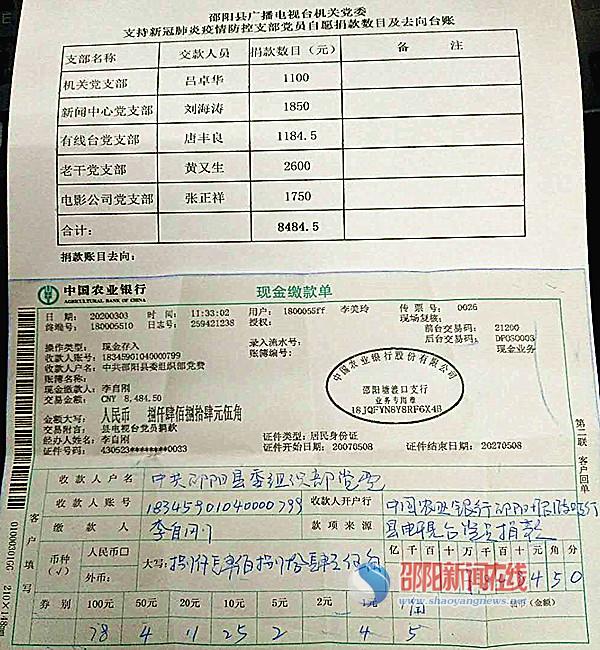 邵阳县广播电视台机关党委
支持新冠肺炎疫情防控支部党员自愿捐款数目及去向台账
支部名称 交款人员 捐款数目（元） 备 注
机关党支部 吕卓华 1100
新闻中心党支部 刘海涛 1850
有线台党支部 唐丰良 1184.5
老干党支部 黄又生 2600
电影公司党支部 张正祥 1750
合计： 8484.5
捐款账目去向：
中国农业银行
AGRICULTURAL BANK OF CHINA
现金缴款单
日期： 20200303 时间： 11:33:02 用户： 1800055ff 李美玲 传票号： 0026
现场复核：
终端号： 180005510 日志号： 259421238 授权： 前台交易码： 21200
后台交易码： DP0S0003
现金业务
操作类型： 现金存入 录入流水号：
收款人账号： 18345901040000799 账簿编号：
收款人户名： 中共邵阳县委组织部党费
账簿名称：
缴款人名称： 李自刚
交易金额： CNY 8,484.50
金额大写： 人民币 捌仟肆佰捌拾肆元伍角
交易附言： 县电视台党员捐款
经办人姓名： 李自刚 证件类型： 居民身份证
证件号码： 430523********0033 证件开始日期： 20070508 证件结束日期： 20270508
中国农业银行股份有限公司
邵阳塘渡口支行
业务专用章
18JQFYN6Y8RF6X4B
第二联 客户回单
收款人户名 中共邵阳县委组织部党费
收款人账号 18345901040000799 收款人开户行 中国农业银行邵阳
缴款人 李自刚 款项来源 县电视台党员捐款
币种（√） 人民币□ 大写： 捌仟肆佰捌拾肆元伍角 亿千百十万千百十元角分
外币：
客户填写
券别 100元 50元 20元 10元 5元 2元 1元
78 4 11 25 2 4 5
010000301G0 210×148mm
邵阳新闻在线
www.shaoyangnews.net